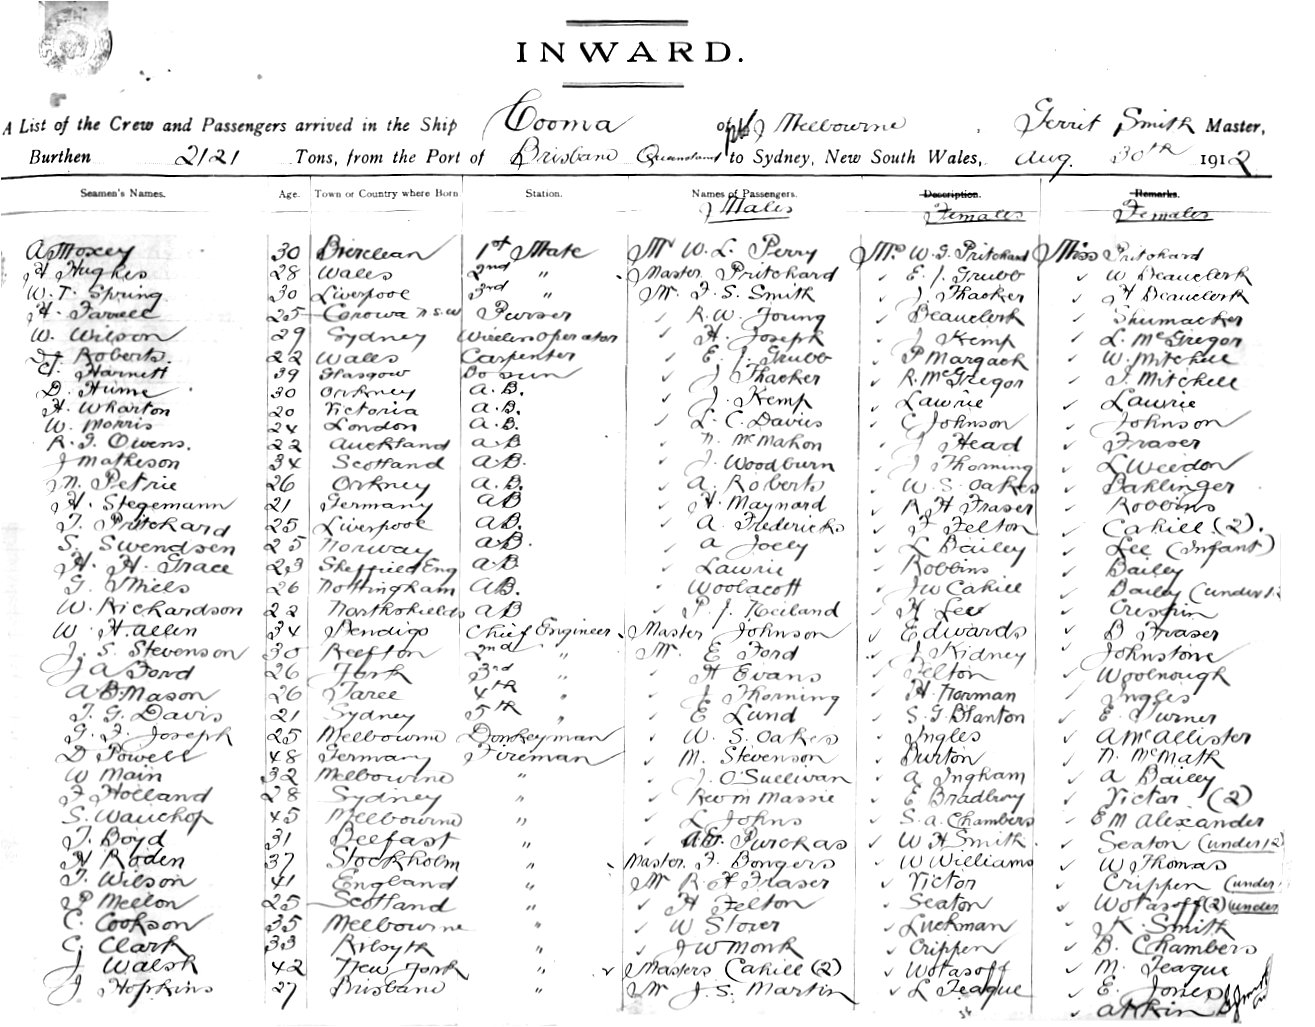 INWARD.
A List of the Crew and Passengers arrived in the Ship Cooma of Melbourne, Gerrit Smith Master,
Burthen 2121 Tons, from the Port of Brisbane Queensland to Sydney, New South Wales, Aug. 30th 1912
Seamen's Names. Age. Town or Country where Born Station. Names of Passengers. Description. Remarks.
Males Females Females
A Moxey 30 1st Mate Mr W. L. Perry Mrs W. G. Pritchard Miss Pritchard
H Hughes 28 Wales 2nd " Master Pritchard E. J. Grubb W Beauclerk
W. T. Spring 30 Liverpool 3rd " Mr. F. S. Smith J Thacker H Beauclerk
H. Farrell 25 Corowa N.S.W Purser R. W. Young Beauclerk Shumacker
W. Wilson 29 Sydney Wireless Operator H. Joseph J Kemp L. McGregor
Roberts 22 Wales Carpenter E. J. Grubb P Margack W. Mitchell
Harnett 39 Glasgow Bo'sun J Thacker R. McGregor J. Mitchell
D. Hume 30 Orkney A.B. J. Kemp Lawrie Lawrie
H. Wharton 20 Victoria A.B. L. C. Davies C Johnson Johnson
W. Morris 24 London A.B. N. McMahon J Head Fraser
R. J. Owens. 22 Auckland A.B J. Woodburn J Thorning L Weedon
J Matheson 34 Scotland A.B. A. Roberts W. S. Oakes Dahlinger
M. Petrie 26 Orkney A.B. H. Maynard R H Fraser Robbins
H. Stegemann 21 Germany A.B A. Fredericks F Felton Cahill (2).
T. Pritchard 25 Liverpool A.B. A Joely L Bailey Lee (Infant)
S. Swendsen 25 Norway A.B. Lawrie Robbins Bailey
H. H. Grace 23 Sheffield Eng A.B Woolacott J W Cahill Bailey (under 12
G. Mills 26 Nottingham A.B. P J. Neiland H Lee Crespin
W. Richardson 22 Northshields A.B Master Johnson Edwards B Fraser
W H. Allen 34 Bendigo Chief Engineer Mr. E Ford J Kidney Johnstone
J. S. Stevenson 30 Reefton 2nd " H Evans Felton Woolnough
J. A Ford 26 York 3rd " J Thorning H. Norman Ingles
A B Mason 26 Taree 4th " E Lund S. G. Blanton E. Turner
T. G. Davis 21 Sydney 5th " W. S. Oakes Ingles A McAllister
J. Joseph 25 Melbourne Donkeyman M. Stevenson Burton N. McMath
D Powell 48 Germany Fireman J. O'Sullivan A Ingham A Bailey
W Main 32 Melbourne " Rev M Massie E Bradbury Victor (2)
F Holland 28 Sydney " L Johns S. A. Chambers E M Alexander
S. Wauchop 45 Melbourne " Purchas W H Smith Seaton (under 12)
T. Boyd 31 Belfast " Master. F. Bongers W Williams W Thomas
H Roden 37 Stockholm " Mr R H Fraser Victor Crippen (under
T. Wilson 41 England " H Felton Seaton Wotasoff (2) (under
P Mellon 25 Scotland " W Storer Luckman K. Smith
C. Cookson 35 Melbourne " J W Monk Crippen B. Chambers
C. Clark 33 " Masters Cahill (2) Wotasoff M. Teague
J Walsh 42 New York " Mr J. S. Martin L Teague E. Jones
J Hopkins 27 Brisbane " Atkin